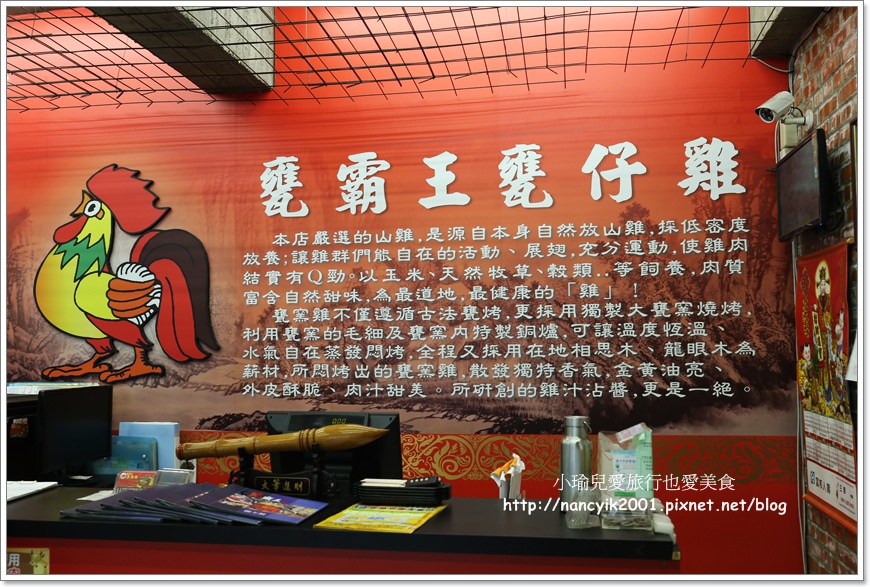 甕霸王甕仔雞
本店嚴選的山雞,是源自本身自然放山雞,採低密度
放養;讓雞群們能自在的活動、展翅,充分運動,使雞肉
結實有Q勁。以玉米、天然牧草、穀類..等飼養,肉質
富含自然甜味,為最道地,最健康的「雞」!
甕窯雞不僅遵循古法甕烤,更採用獨製大甕窯燒烤,
利用甕窯的毛細及甕窯內特製銅爐,可讓溫度恆溫、
水氣自在蒸發悶烤,全程又採用在地相思木、龍眼木為
薪材,所悶烤出的甕窯雞,散發獨特香氣,金黃油亮、
外皮酥脆、肉汁甜美。所研創的雞汁沾醬,更是一絕。
小瑜兒愛旅行也愛美食
http://nancyik2001.pixnet.net/blog